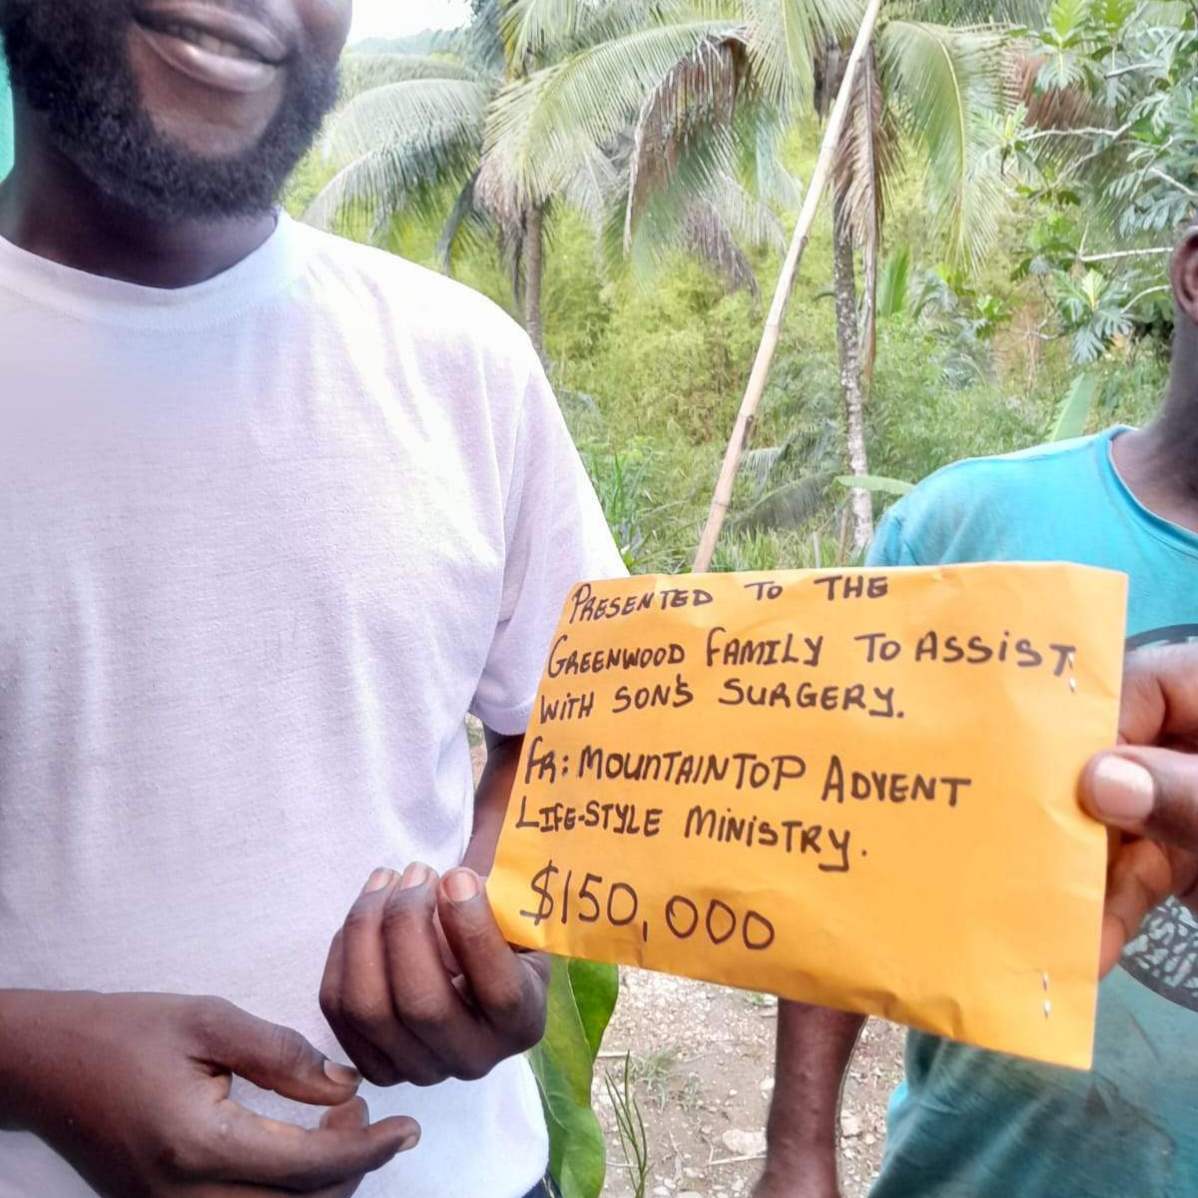 PRESENTED TO THE
GREENWOOD FAMILY TO ASSIST
WITH SON'S SURGERY.
FR: MOUNTAINTOP ADVENT
LIFE-STYLE MINISTRY.
$150,000